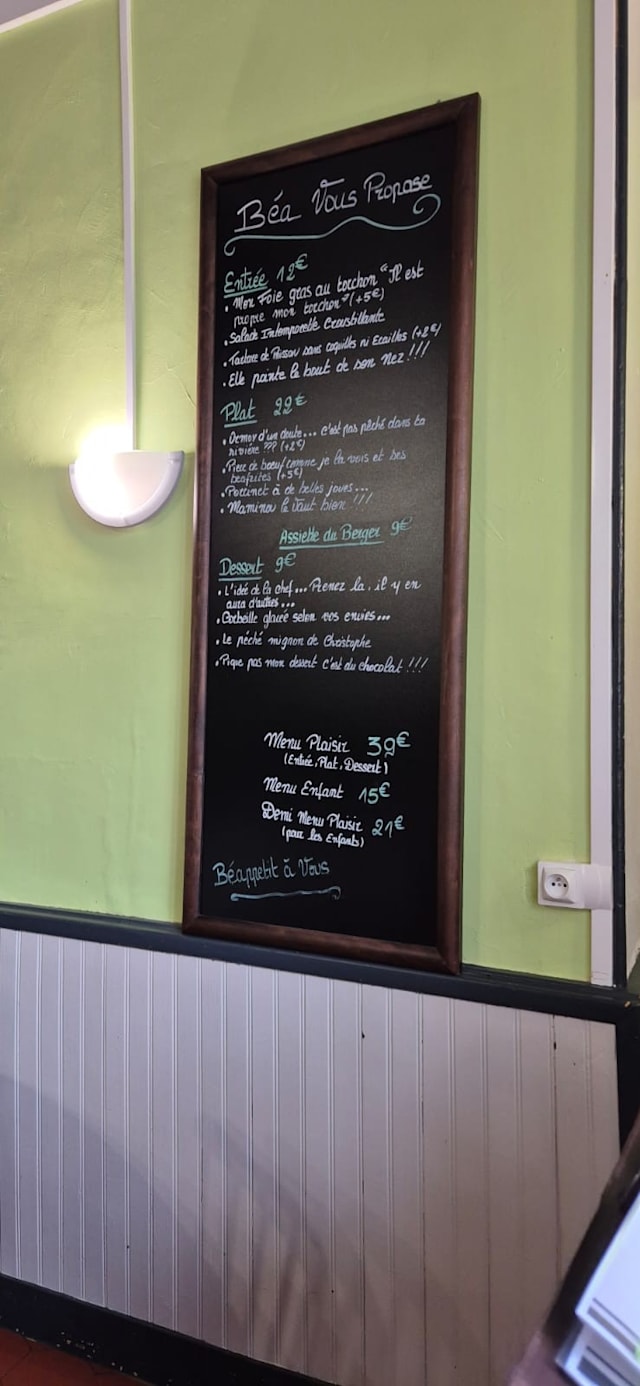 Béa Vous Propose
Entrée 12€
• Mon Foie gras au torchon "Il est
propre mon torchon" (+5€)
• Salade Intemporelle Croustillante
• Tartare de Poisson sans coquilles ni Ecailles (+2€)
• Elle pointe le bout de son Nez !!!
Plat 22€
• d'un doute... c'est pas pêché dans ta
rivière ??? (+2€)
• Pièce de boeuf comme je la vois et ses
(+5€)
• à de belles joues...
• le Vaut bien !!!
Assiette du Berger 9€
Dessert 9€
• L'idée de la chef... Prenez la, il y en
aura d'autres...
• Corbeille glacée selon vos envies...
• Le péché mignon de Christophe
• Pique pas mon dessert c'est du chocolat !!!
Menu Plaisir 39€
(Entrée, Plat, Dessert)
Menu Enfant 15€
Demi Menu Plaisir 21€
(pour les Enfants)
Béappetit à Vous